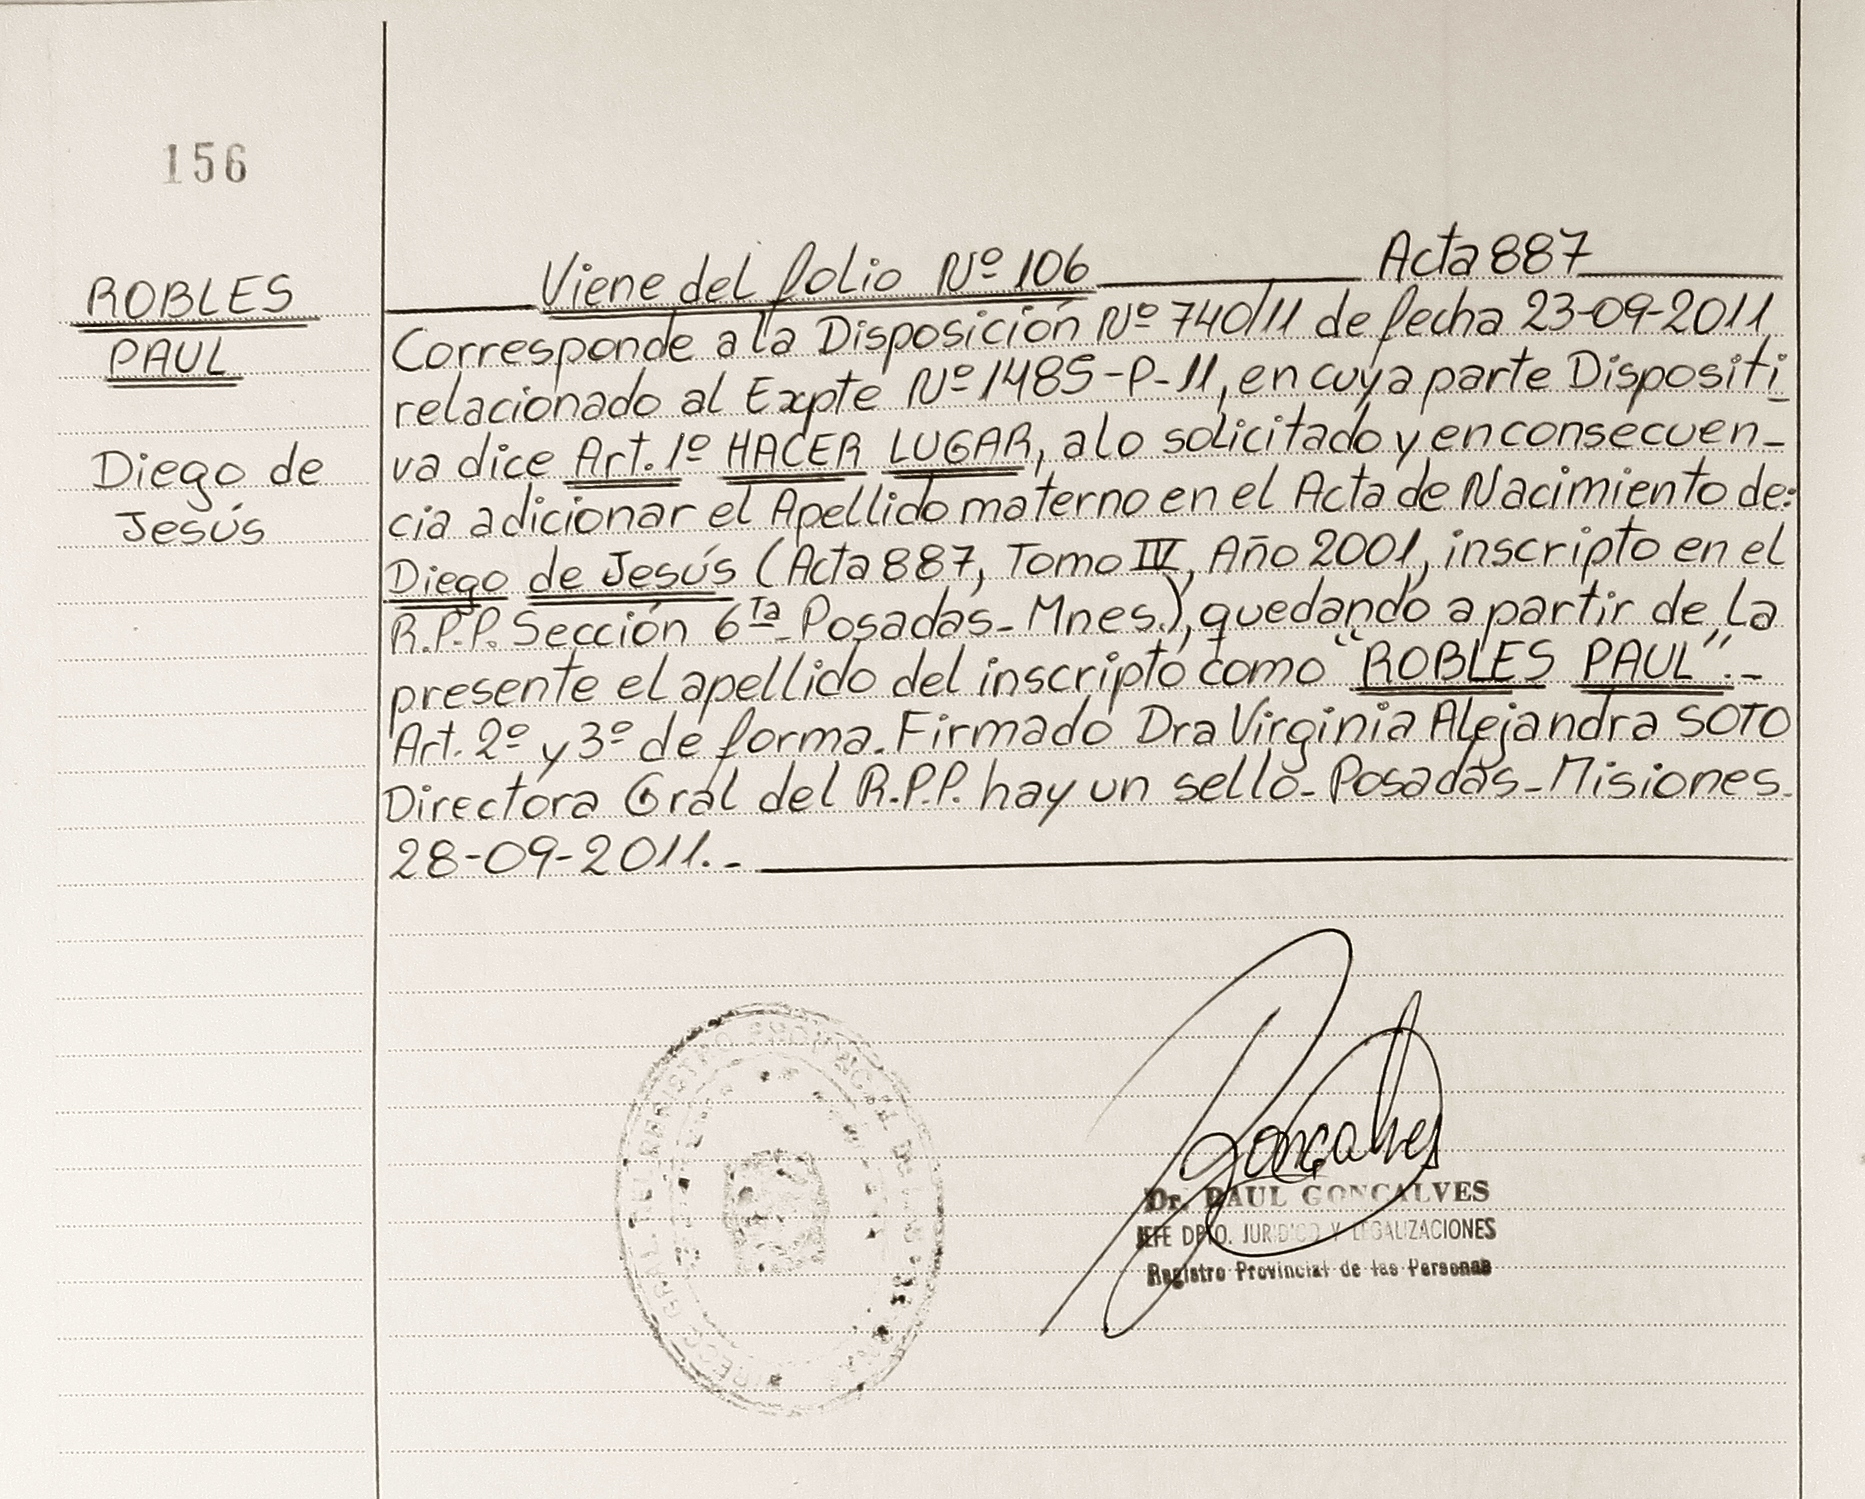 156
ROBLES
PAUL
Diego de
Jesús
Viene del folio Nº 106 Acta 887
Corresponde a la Disposición Nº 740/11 de fecha 23-09-2011
relacionado al Expte Nº 1485-P-11, en cuya parte Dispositi
va dice Art. 1º HACER LUGAR, a lo solicitado y en consecuen-
cia adicionar el Apellido materno en el Acta de Nacimiento de:
Diego de Jesús (Acta 887, Tomo IV, Año 2001, inscripto en el
R.P.P. Sección 6ta Posadas- Mnes.), quedando a partir de la
presente el apellido del inscripto como "ROBLES PAUL".-
Art. 2º y 3º de forma. Firmado Dra Virginia Alejandra SOTO
Directora Gral del R.P.P. hay un sello- Posadas-Misiones.
28-09-2011.-
REGISTRO PROVINCIAL DE LAS
Gonçalves
Dr. RAUL GONCALVES
JEFE DPTO. JURIDICO Y LEGALIZACIONES
Registro Provincial de las Personas